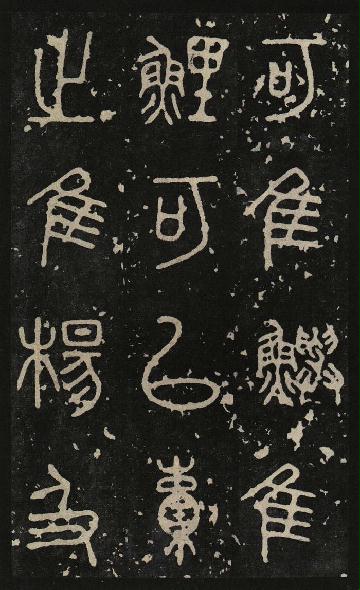 可隹鱮隹
鯉可以橐
之隹楊及